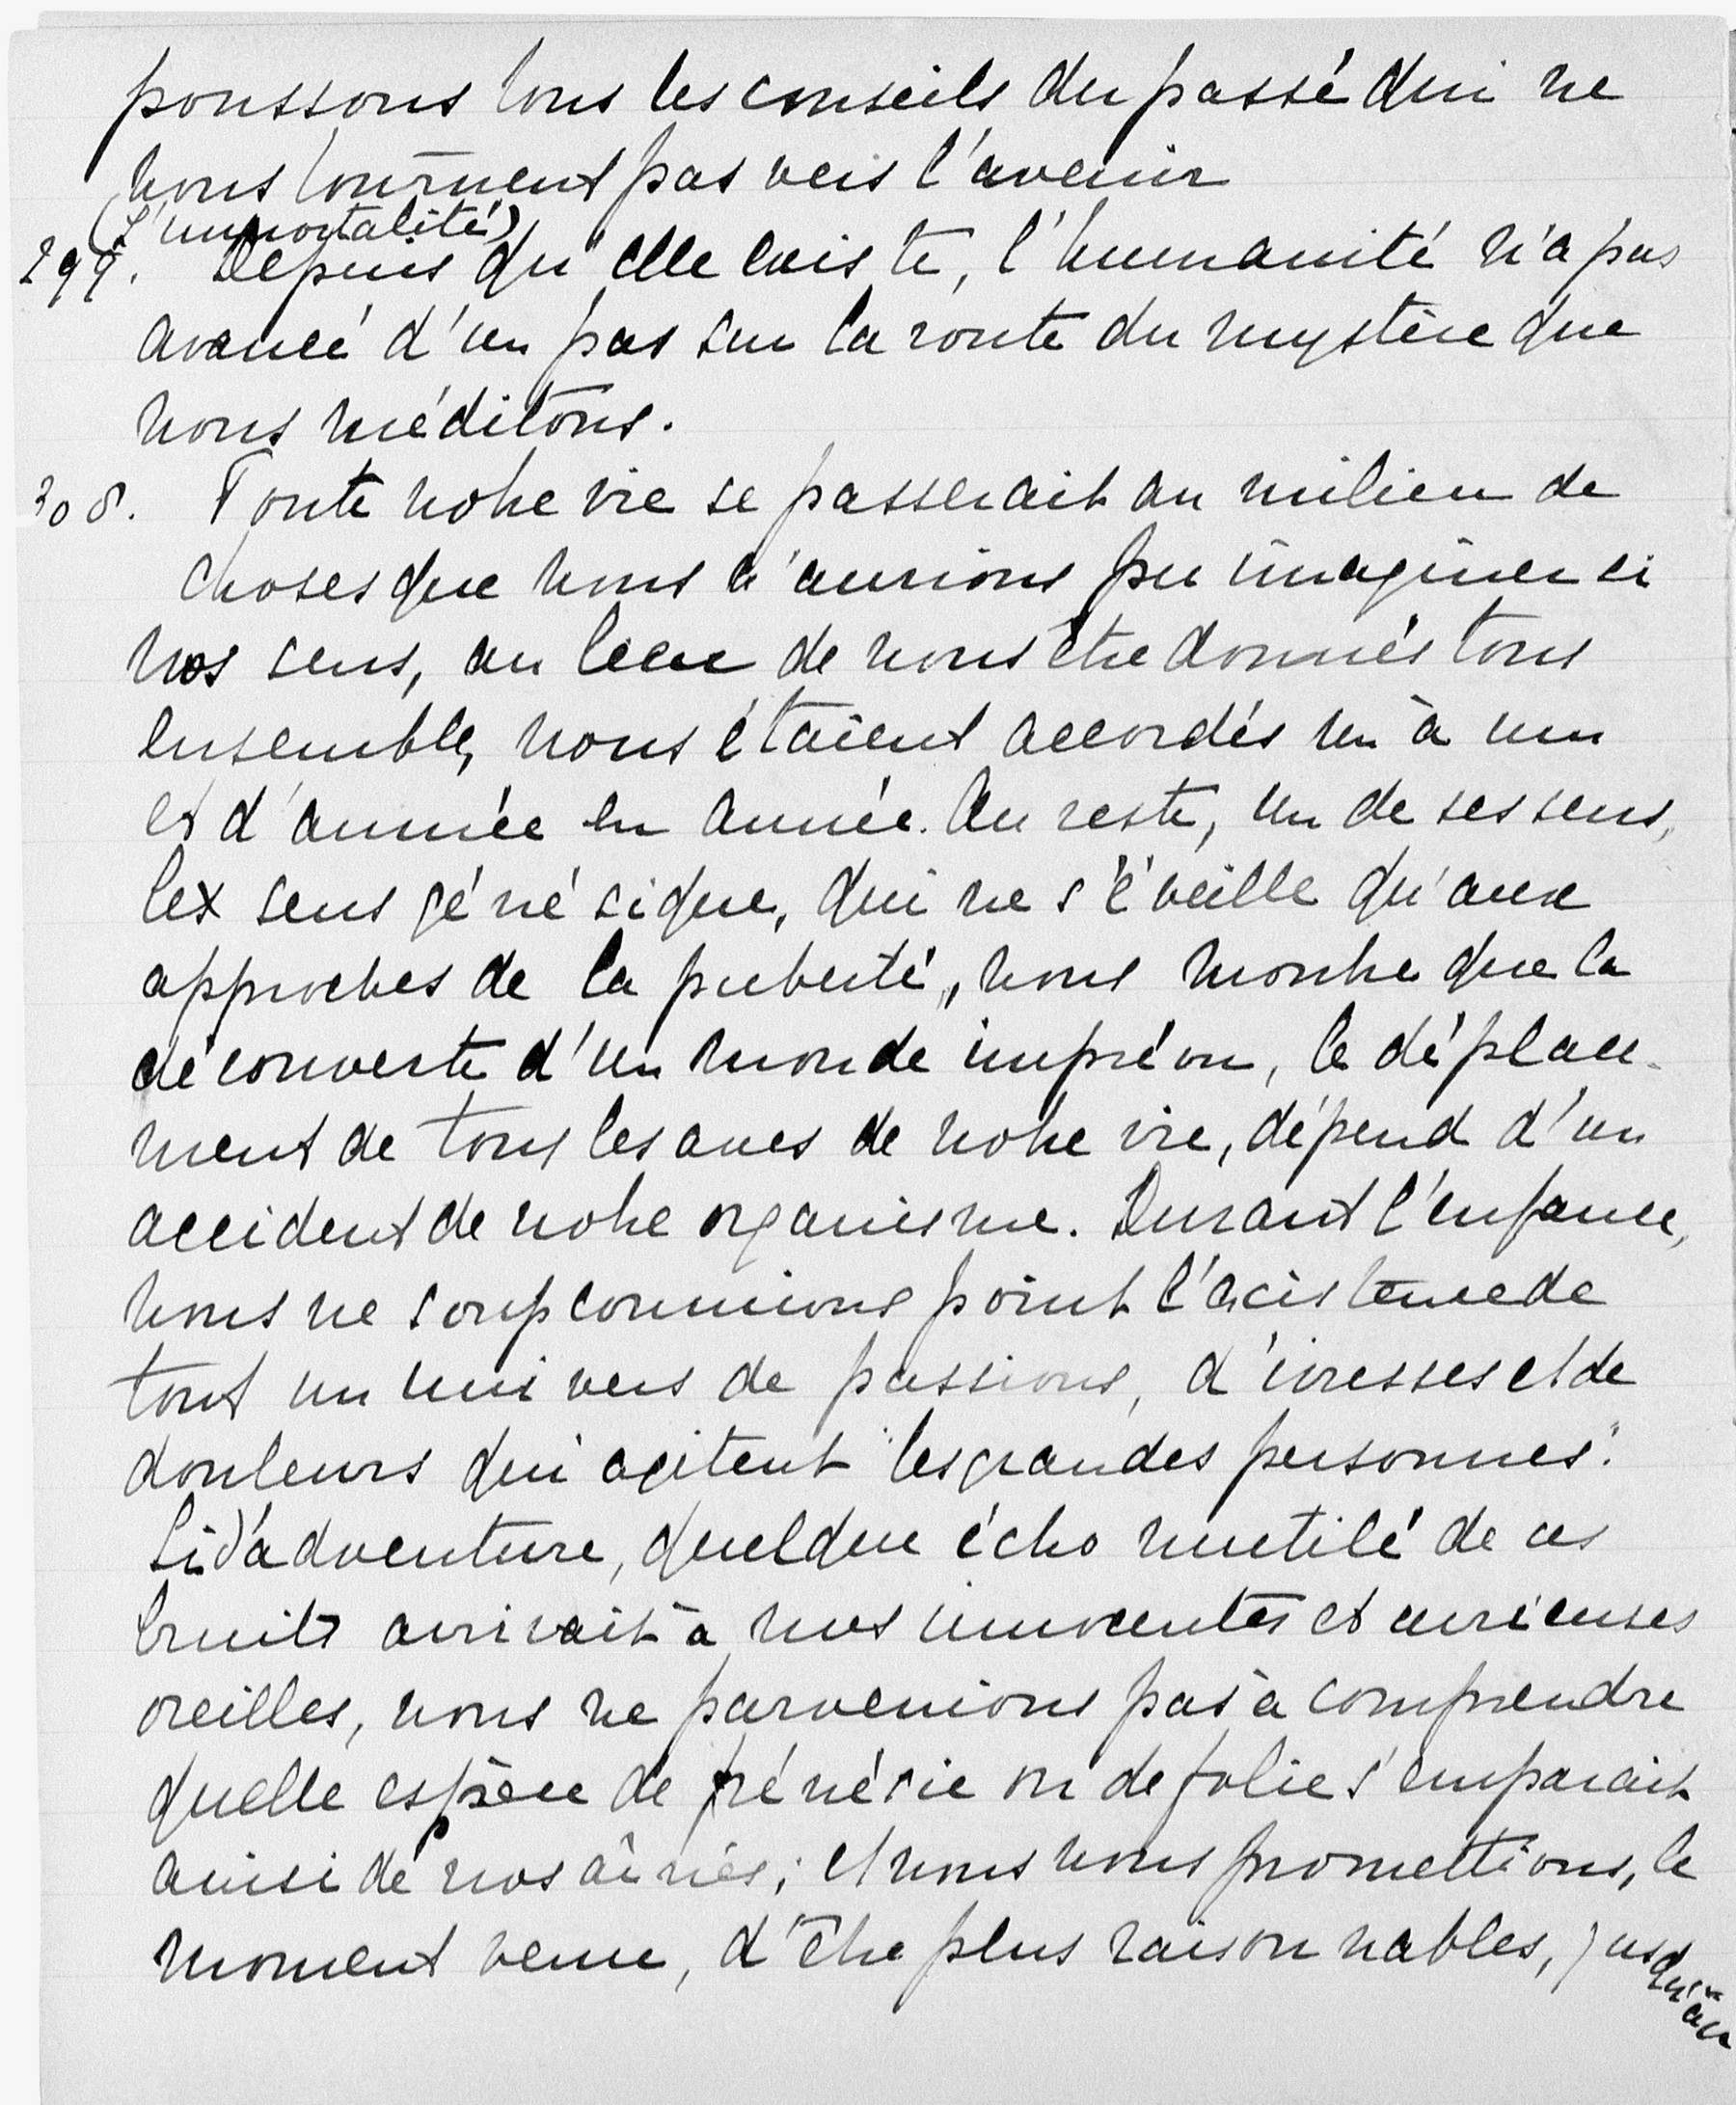 poussons tous les conseils du passé qui ne
nous tournent pas vers l'avenir
(L'immortalité)
299. Depuis qu'elle existe, l'humanité n'a pas
avancé d'un pas sur la route du mystère que
nous méditons.
308. Toute notre vie se passerait au milieu de
choses que nous n'aurions pu imaginer si
nos sens, au lieu de nous être donnés tous
ensemble, nous étaient accordés un à un
et d'année en année. Au reste, un de ses sens,
le sens génésique, qui ne s'éveille qu'aux
approches de la puberté, nous montre que la
découverte d'un monde imprévu, le déplace-
ment de tous les axes de notre vie, dépend d'un
accident de notre organisme. Durant l'enfance,
nous ne soupconnions point l'existence de
tout un univers de passions, d'ivresses et de
douleurs qui agitent "les grandes personnes".
Si d'adventure, quelque écho mutilé de ces
bruits arrivait à nos innocentes et curieuses
oreilles, nous ne parvenions pas à comprendre
quelle espèce de frénésie ou de folie s'emparait
ainsi de nos aînés; et nous nous promettions, le
moment venu, d'être plus raisonnables, jusqu'au